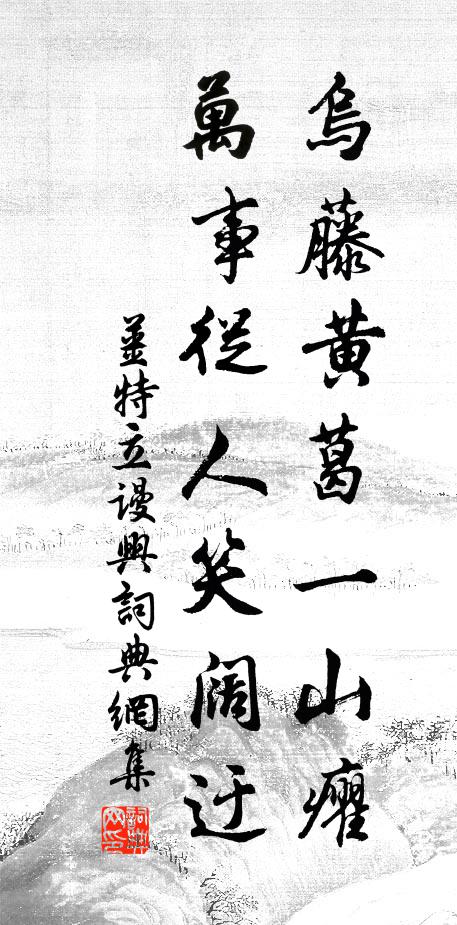 烏藤黃葛一山癯
萬事從人笑闊迂
姜特立謾興詞典網集